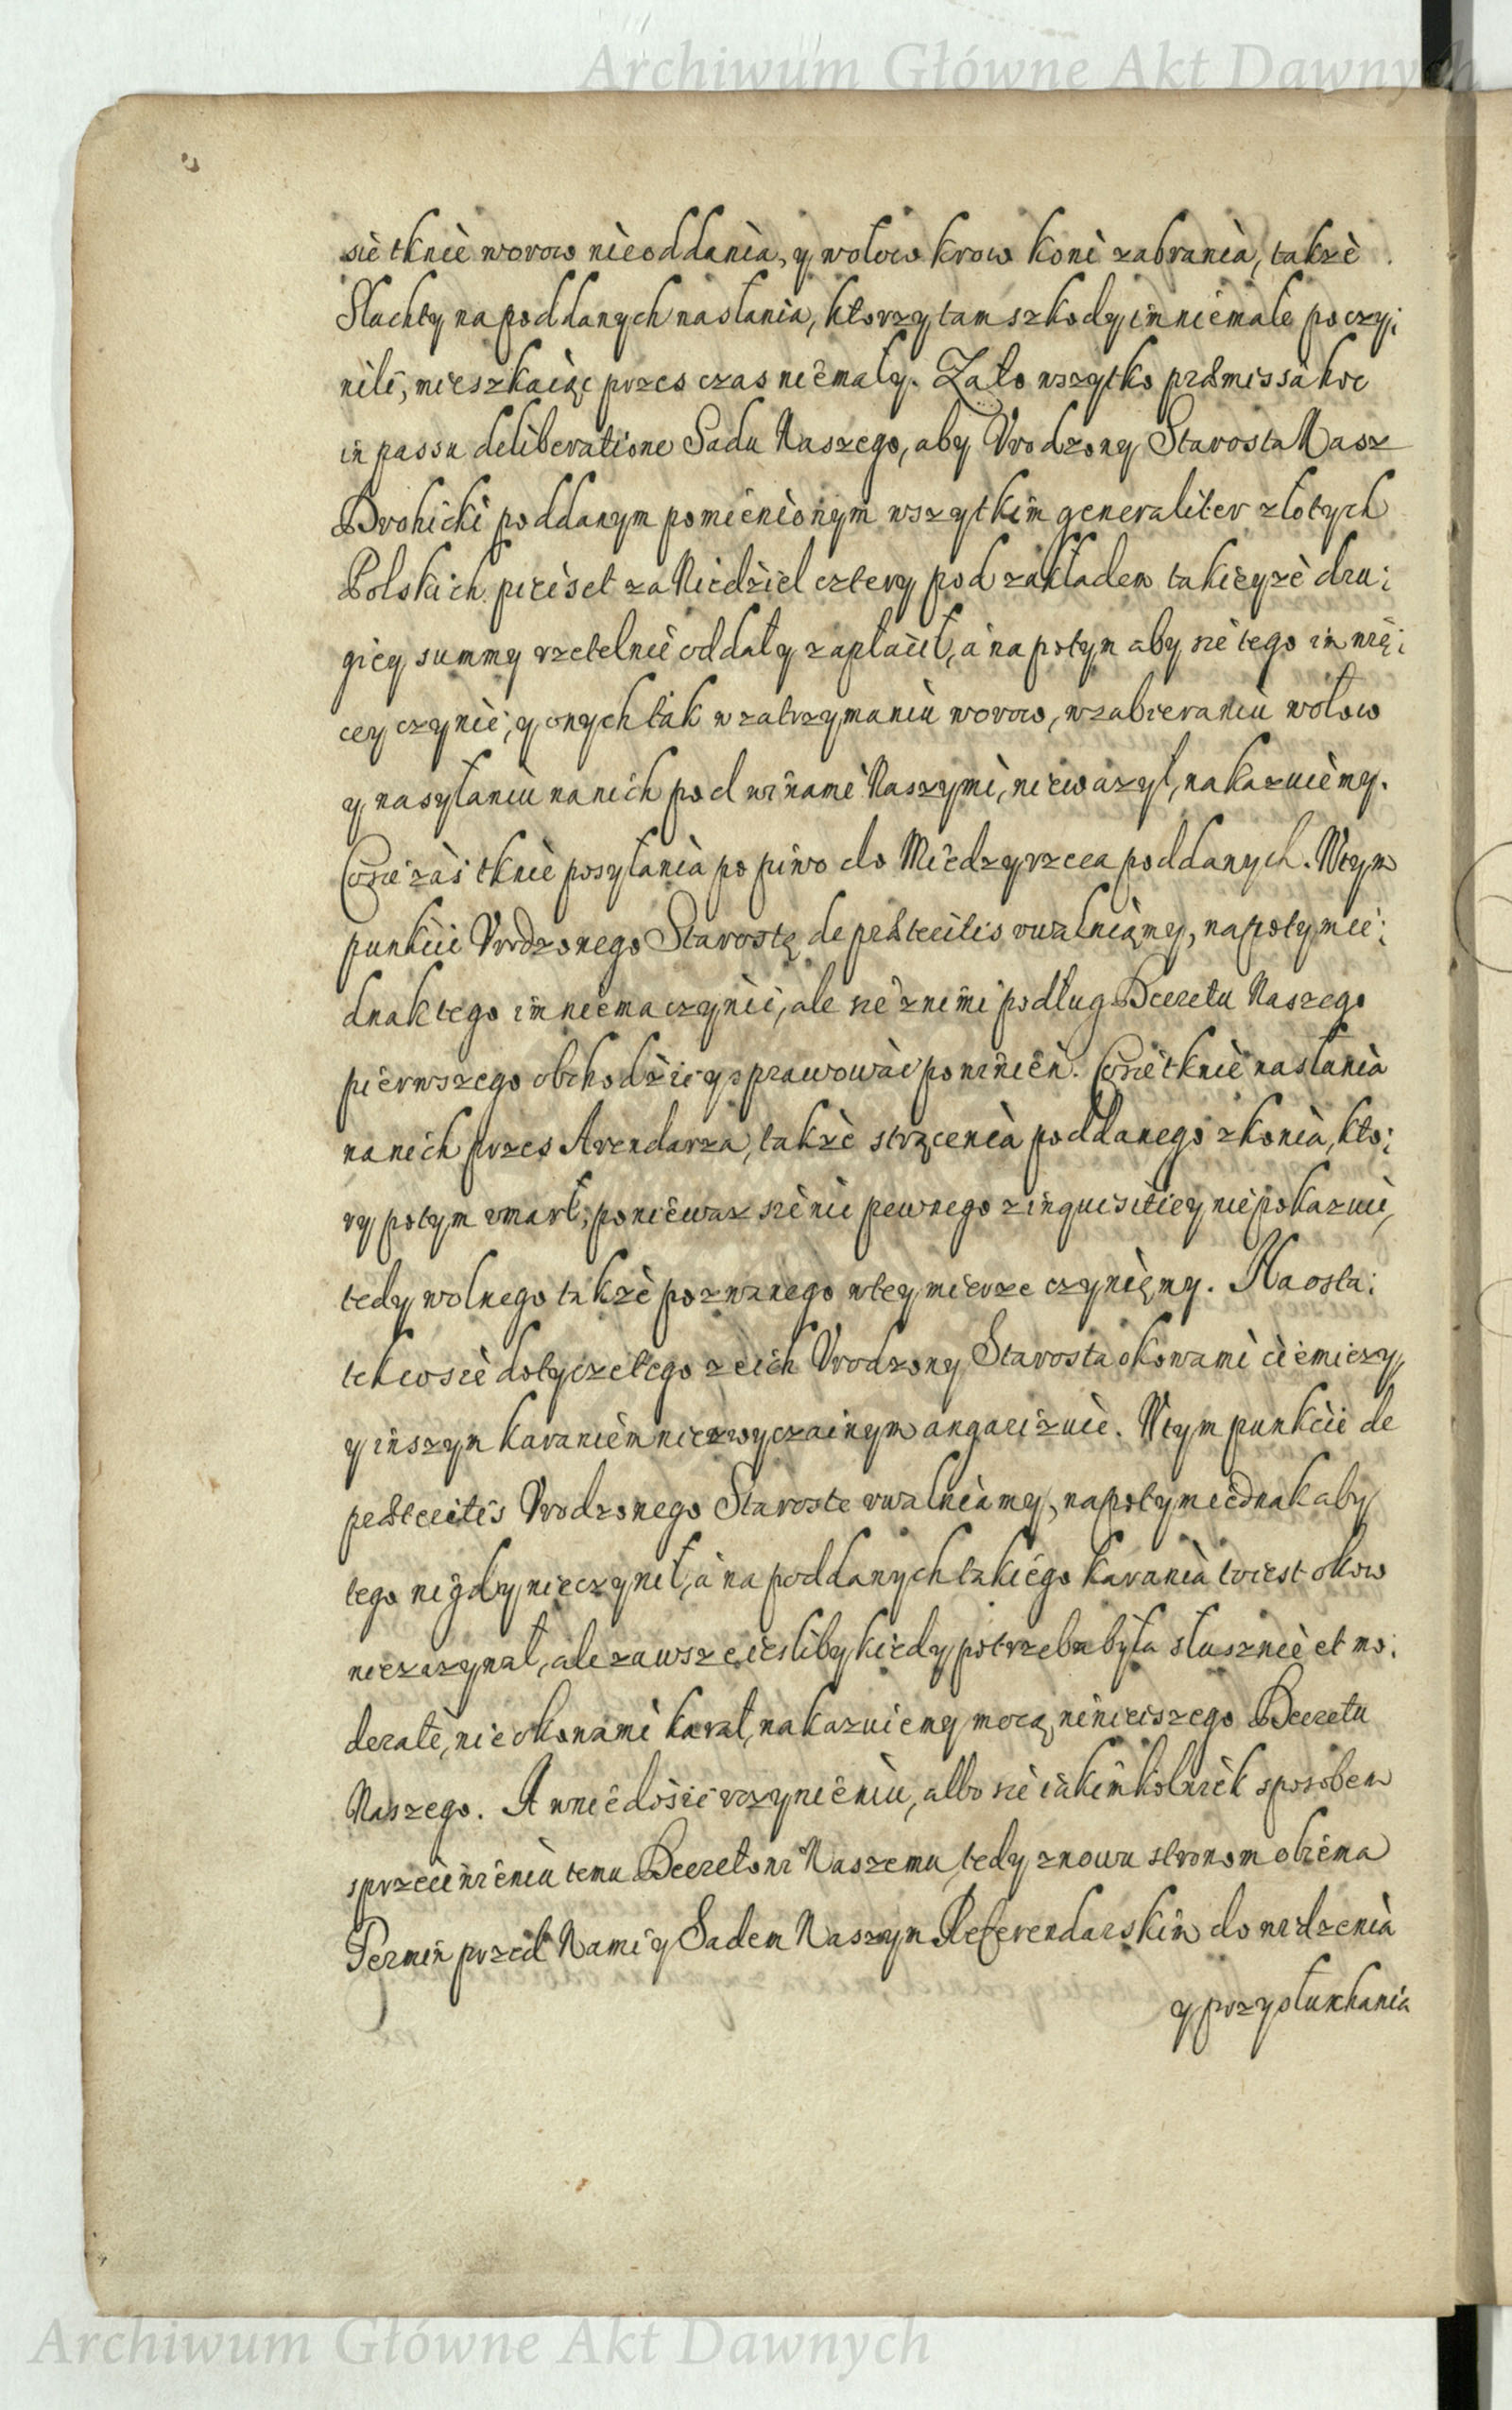 Archiwum Główne Akt Dawnych
się tknie worow nieoddania, y wołow krow koni zabrania, także
Slachty na poddanych nasłania, ktorzy tam szkody im niemałe poczy:
nili, mieszkaiąc przes czas niemały. Za to wszytko præmissa hoc
in passu deliberatione Sadu Naszego, aby Vrodzony Starosta Nasz
Drohicki poddanym pomienionym wszytkim generaliter złotych
Polskich pięćset za Niedziel cztery pod zakładem takieyże dru:
giey summy rzetelnie oddał y zapłacił, a na potym aby się tego im wię:
cey czynić, y onych tak w zatrzymaniu worow, w zabieraniu wołow
y nasyłaniu na nich pod winami Naszymi, nieważył, nakazuiemy.
Co się zaś tknie posyłania po piwo do Miedzyrzeca poddanych. W tym
punkcie Vrodzonego Starostę de præteritis uwalniamy, na potym ie:
dnak tego im niema czynić, ale się z nimi podług Decretu Naszego
pierwszego obchodzić y sprawować powinien. Co się tknie nasłania
na nich przes Arendarza, także strącenia poddanego z konia, kto:
ry potym vmarł, ponieważ się nic pewnego z inquisitiey niepokazuie,
tedy wolnego także pozwanego w tey mierze czynięmy. Na osta:
tek co się dotycze tego ze ich Vrodzony Starosta okowami ciemięzy,
y inszym karaniem niezwyczainym angarizuie. W tym punkcie de
præteritis Vrodzonego Staroste uwalniamy, na potym iednak aby
tego nigdy nieczynił, a na poddanych takiego karania to iest okow
niezazynał, ale zawsze iesliby kiedy potrzeba była słusznie et mo:
derate, nie okowami karał, nakazuiemy mocą ninieiszego Decretu
Naszego. A w niedosić vczynieniu, albo się iakimkolwiek sposobem
sprzeciwieniu temu Decretowi Naszemu, tedy znowu stronom obiema
Termin przed Nami y Sadem Naszym Referendarskim do widzenia
y przysłuchania
Archiwum Główne Akt Dawnych